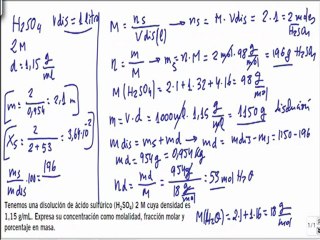 H₂SO₄ Vdis = 1 litro
2M
d = 1,15 g/ml
[m = 2/0,954 = 2,1 m]
[Xs = 2/(2+53) = 3,64·10⁻²]
ms/mdis · 100 = 196
M = ns/Vdis(l) → ns = M·Vdis = 2·1 = 2 moles H₂SO₄
n = m/M → ms = n·M = 2 mol · 98 g/mol = 196 g H₂SO₄
M(H₂SO₄) = 2·1 + 1·32 + 4·16 = 98 g/mol
m = v·d = 1000 ml · 1,15 g/ml = 1150 g disolución
mdis = ms + md → md = mdis - ms = 1150 - 196
md = 954 g = 0,954 kg
nd = md/M = 954 g/18 g/mol = 53 mol H₂O
M(H₂O) = 2·1 + 1·16 = 18 g/mol
Tenemos una disolución de ácido sulfúrico (H₂SO₄) 2 M cuya densidad es
1,15 g/mL. Expresa su concentración como molalidad, fracción molar y
porcentaje en masa.